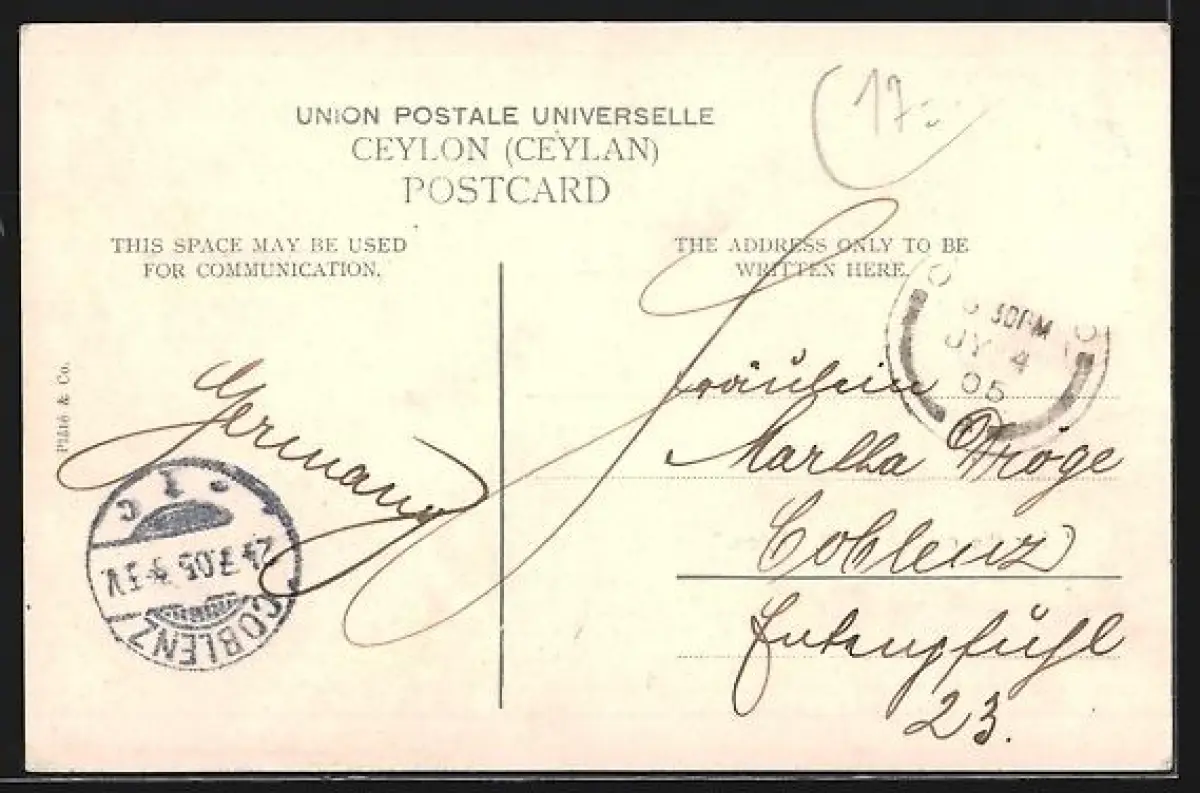 (17.-
UNION POSTALE UNIVERSELLE
CEYLON (CEYLAN)
POSTCARD
THIS SPACE MAY BE USED
FOR COMMUNICATION.
THE ADDRESS ONLY TO BE
WRITTEN HERE.
30PM
JY 4
05
Plâté & Co.
Germany
Fräulein
Martha Dröge
Coblenz
Entenpfuhl
23.
COBLENZ
24.7.05